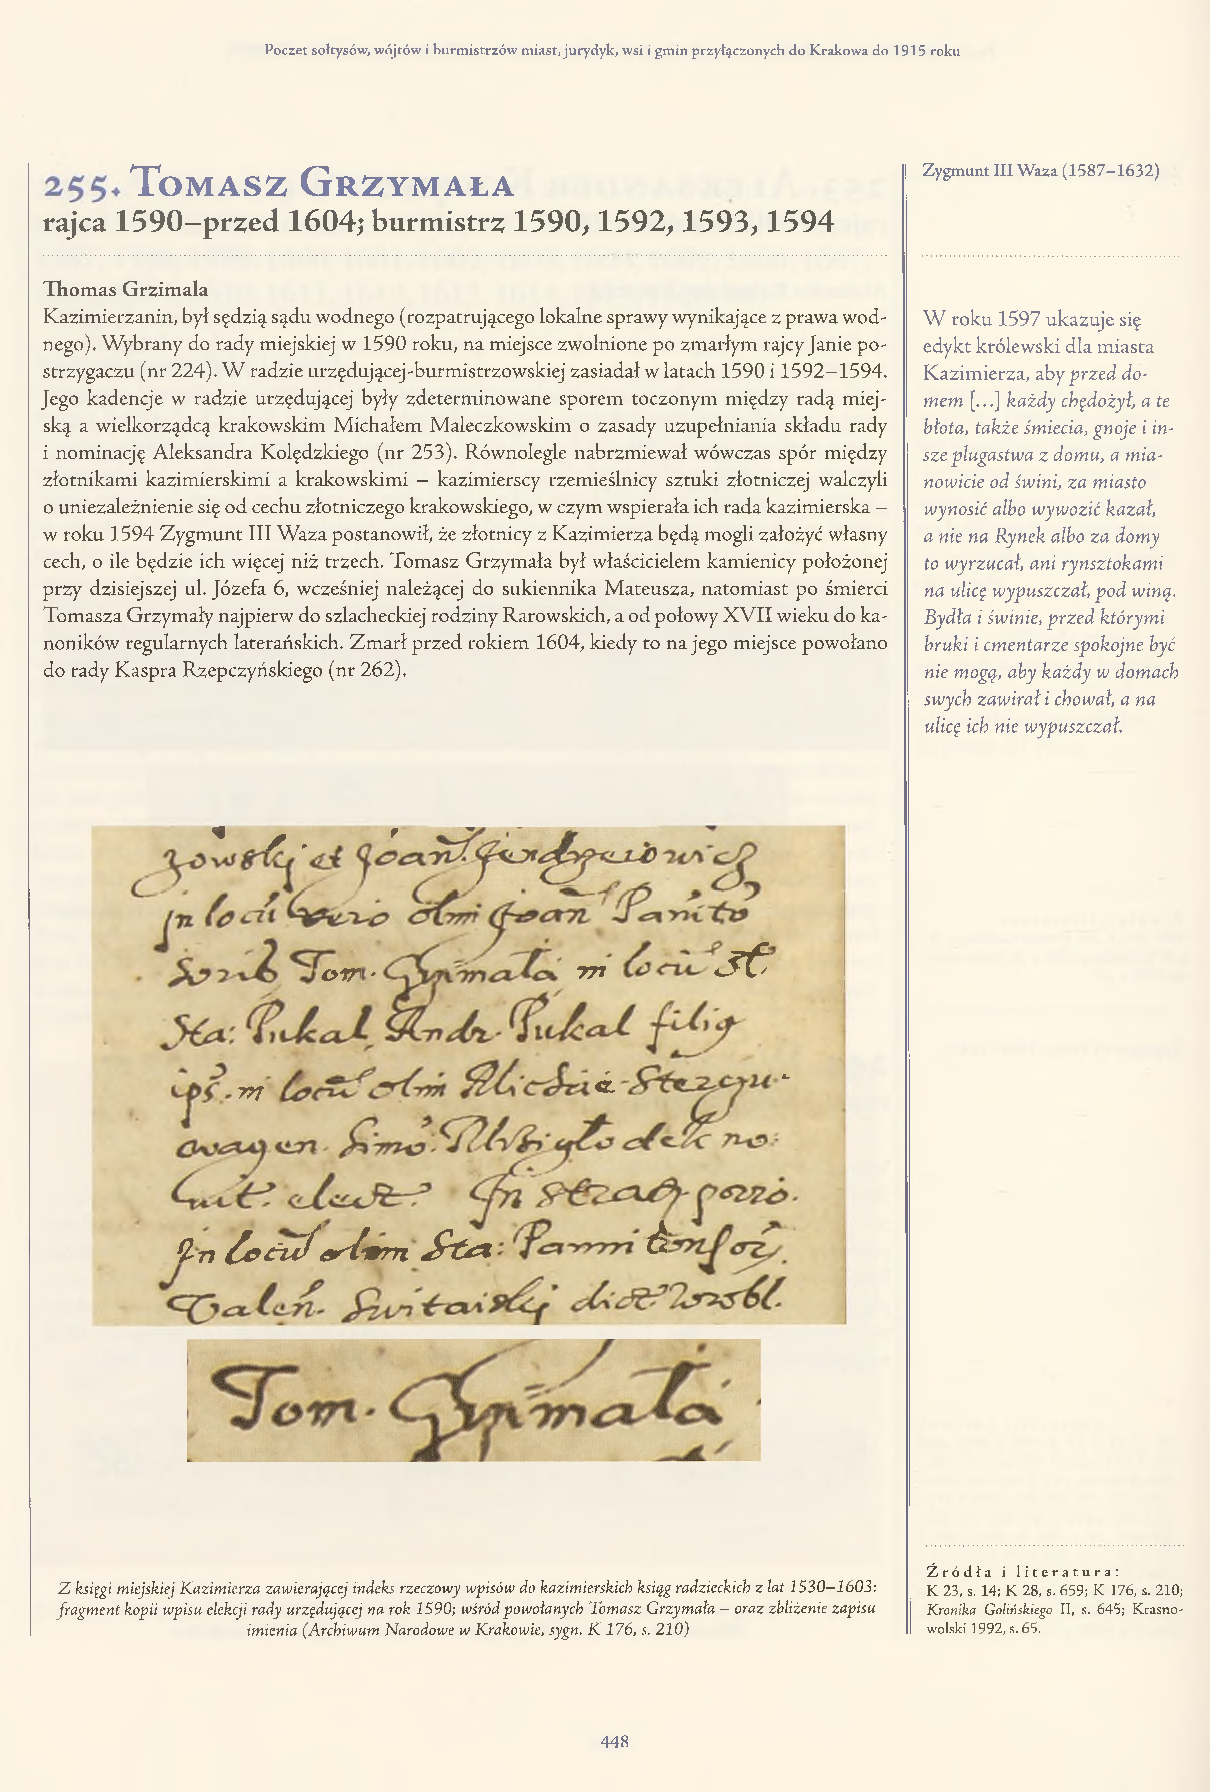 Poczet sołtysów, wójtów i burmistrzów miast, jurydyk, wsi i gmin przyłączonych do Krakowa do 1915 roku
255. Tomasz Grzymała
rajca 1590–przed 1604; burmistrz 1590, 1592, 1593, 1594
Thomas Grzimala
Kazimierzanin, był sędzią sądu wodnego (rozpatrującego lokalne sprawy wynikające z prawa wod-
nego). Wybrany do rady miejskiej w 1590 roku, na miejsce zwolnione po zmarłym rajcy Janie po-
strzygaczu (nr 224). W radzie urzędującej-burmistrzowskiej zasiadał w latach 1590 i 1592–1594.
Jego kadencje w radzie urzędującej były zdeterminowane sporem toczonym między radą miej-
ską a wielkorządcą krakowskim Michałem Maleczkowskim o zasady uzupełniania składu rady
i nominację Aleksandra Kolędzkiego (nr 253). Równolegle nabrzmiewał wówczas spór między
złotnikami kazimierskimi a krakowskimi – kazimierscy rzemieślnicy sztuki złotniczej walczyli
o uniezależnienie się od cechu złotniczego krakowskiego, w czym wspierała ich rada kazimierska –
w roku 1594 Zygmunt III Waza postanowił, że złotnicy z Kazimierza będą mogli założyć własny
cech, o ile będzie ich więcej niż trzech. Tomasz Grzymała był właścicielem kamienicy położonej
przy dzisiejszej ul. Józefa 6, wcześniej należącej do sukiennika Mateusza, natomiast po śmierci
Tomasza Grzymały najpierw do szlacheckiej rodziny Rarowskich, a od połowy XVII wieku do ka-
noników regularnych laterańskich. Zmarł przed rokiem 1604, kiedy to na jego miejsce powołano
do rady Kaspra Rzepczyńskiego (nr 262).
Zygmunt III Waza (1587–1632)
W roku 1597 ukazuje się
edykt królewski dla miasta
Kazimierza, aby przed do-
mem [...] każdy chędożył, a te
błota, także śmiecia, gnoje i in-
sze plugastwa z domu, a mia-
nowicie od świni, za miasto
wynosić albo wywozić kazał,
a nie na Rynek albo za domy
to wyrzucał, ani rynsztokami
na ulicę wypuszczał, pod winą.
Bydła i świnie, przed którymi
bruki i cmentarze spokojne być
nie mogą, aby każdy w domach
swych zawirał i chował, a na
ulicę ich nie wypuszczał.
et Joan.
In locu vero olim Joan
Tom. Grzimała in locu
Sta: Pukal, Andr. Pukal filiq
in locu olim
In locu olim Sta:
Tom. Grzimała
Z księgi miejskiej Kazimierza zawierającej indeks rzeczowy wpisów do kazimierskich ksiąg radzieckich z lat 1530–1603:
fragment kopii wpisu elekcji rady urzędującej na rok 1590; wśród powołanych Tomasz Grzymała – oraz zbliżenie zapisu
imienia (Archiwum Narodowe w Krakowie, sygn. K 176, s. 210)
Źródła i literatura:
K 23, s. 14; K 28, s. 659; K 176, s. 210;
Kronika Golińskiego II, s. 645; Krasno-
wolski 1992, s. 65.
448